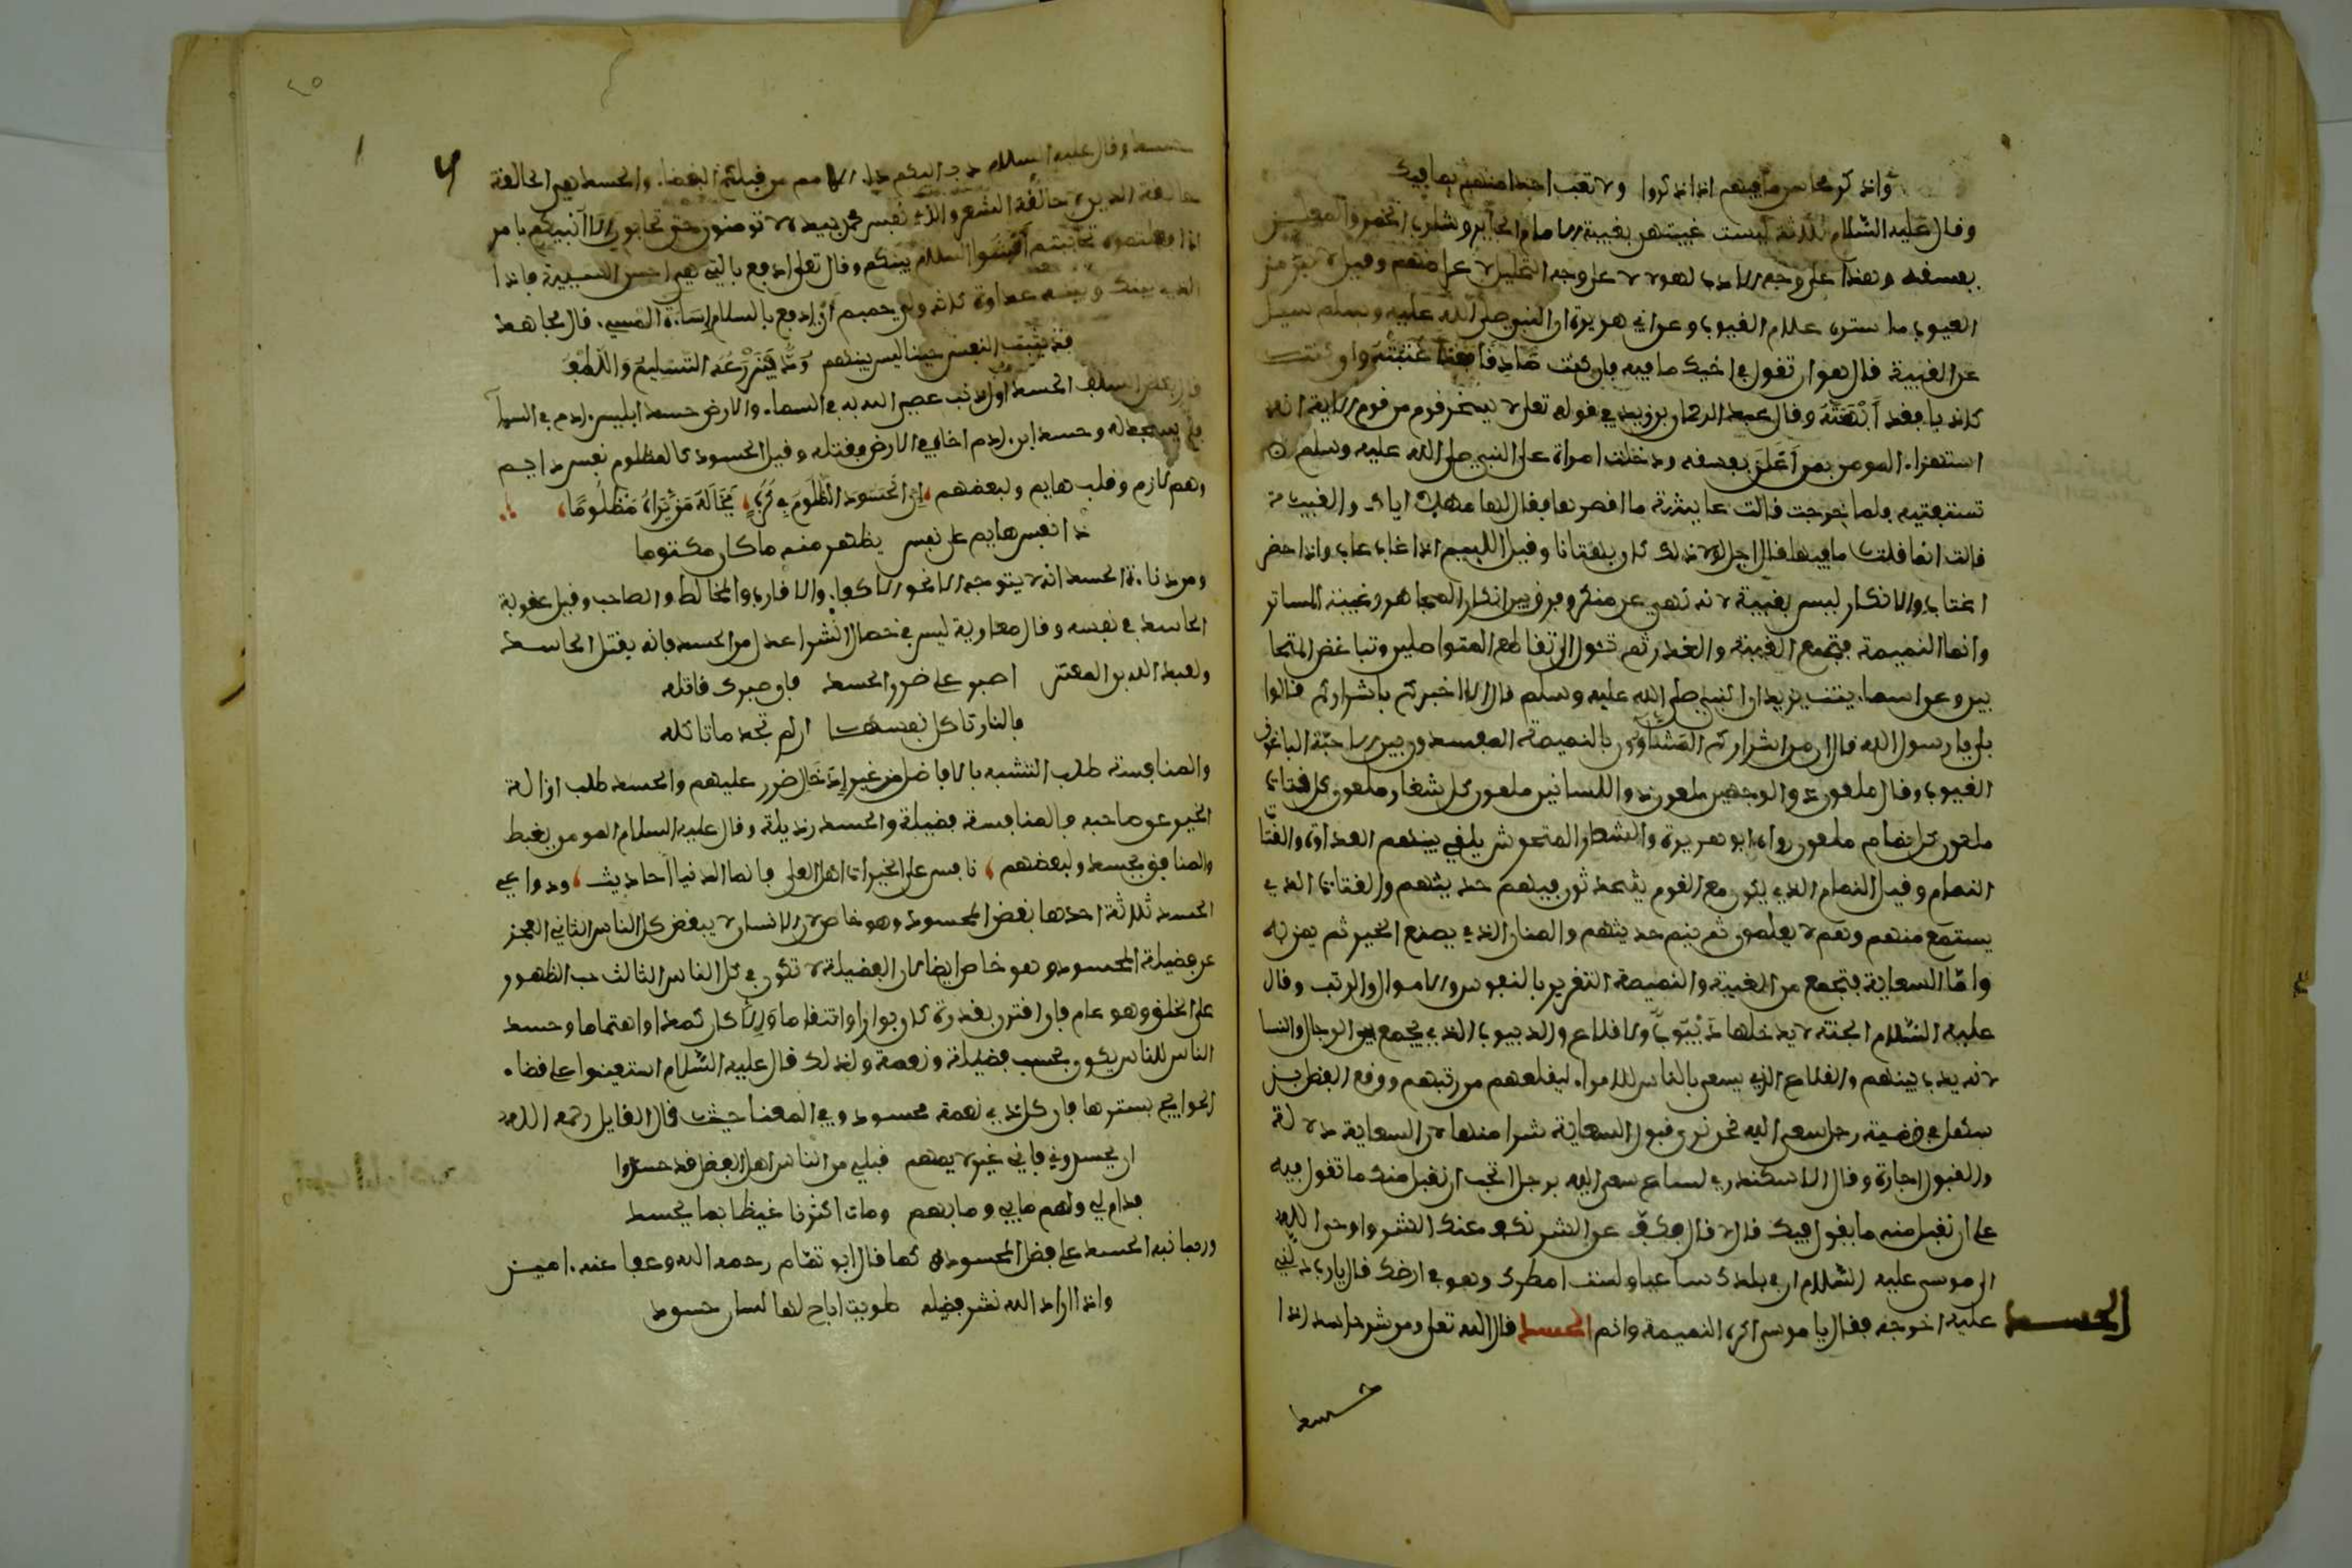 واذكر محاسن ما فيهم اذا ذكروا ولا تعب احدا منهم بما فيك
وقال عليه السلام ثلاثة ليست غيبتهم بغيبة الامام الجاير وشارب الخمر والمعلن
بفسقه وهذا على وجه الادب لهم لا على وجه وقيل
العيوب ما ستره علام الغيوب وعن ابي هريرة ان النبي صلى الله عليه وسلم سيل
عن الغيبة قال هو ان تقول في اخيك ما فيه فان كنت صادقا فقد اغتبته وان كنت
كاذبا فقد ابهته وقال عبد الرحمان بن زيد في قوله تعلى لا يسخر قوم من قوم الاية انه
استهزاء المومن بمن اعلن بفسقه ودخلت امراة على النبي صلى الله عليه وسلم
تستفتيه فلما خرجت قالت عايشة ما اقصرها فقال لها مهلا اياك والغيبة
قالت انما قلت ما فيها قال اجل لولا ذلك كان بهتانا وقيل اللييم اذا غاب عاب واذا حضر
اغتاب والانكار ليس بغيبة لانه نهي عن منكر وفرق بين انكار المجاهر وغيبة المساتر
وانما النميمة فتجمع الغيبة والغدر ثم تئول الى تقاطع المتواصلين وتباغض المتحا
بين وعن اسماء بنت يزيد ان النبي صلى الله عليه وسلم قال الا اخبركم باشراركم قالوا
بلى يا رسول الله قال ان من اشراركم المشاؤون بالنميمة المفسدون بين الاحبة الباغون
العيوب وقال ملعون ذو الوجهين ملعون ذو اللسانين ملعون كل شغار ملعون كل قتات
ملعون كل نمام ملعون رواه ابو هريرة والشغار المتحوش يلقي بينهم العداوة والقتا
النمام وقيل النمام الذي يكون مع القوم يتحدثون فينم حديثهم والقتات الذي
يستمع منهم وهم لا يعلمون ثم ينم حديثهم والمنان الذي يصنع الخير ثم يمن به
واما السعاية فتجمع من الغيبة والنميمة التغرير بالنفوس والاموال والرتب وقال
عليه السلام الجنة لا يدخلها ديبوب ولا قلاع والديبوب الذي يجمع بين الرجال والنسا
لانه يدب بينهم والقلاع الذي يسعى بالناس للامراء ليقلعهم من رتبهم ووقع الفضل بن
سهل في قضية رجل سعى اليه نحن نرى قبول السعاية شرا منها لان السعاية دلالة
والقبول اجازة وقال الاسكندر لساع سعى اليه برجل اتحب ان نقبل منك ما تقول فيه
على ان نقبل منه ما يقول فيك قال لا قال فكف عن الشر نكف عنك الشر واوحى الله
الى موسى عليه السلام ان في بلدك ساعيا ولست امطرك وهو في ارضك قال يارب دلني
عليه اخرجه فقال يا موسى اكره النميمة وانم الحسد قال الله تعلى ومن شر حاسد اذا
الحسد
حسد
٢٥
حسد وقال عليه السلام دب اليكم داء الامم من قبلكم البغضاء والحسد هي الحالقة
حالقة الدين لا حالقة الشعر والذي نفس محمد بيده لا تومنون حتى تحابون الا انبيكم بامر
اذا فعلتموه تحاببتم افشوا السلام بينكم وقال تعلى ادفع بالتي هي احسن السيية فاذا
الذي بينك وبينه عداوة كانه ولي حميم اي ادفع بالسلام اساءة المسيء قال مجاهد
قد تلبث النفس حينا ليس بينهم ود فيزرعه التسليم واللطف
قال بعض السلف الحسد اول ذنب عصي الله به في السماء والارض حسد ابليس ادم في السماء
فلم يسجد له وحسد ابن ادم اخاه في الارض فقتله وقيل الحسود كالمظلوم نفس دايم
وهم لازم وقلب هايم ولبعضهم ان الحسود الظلوم في كرب يخاله من يراه مظلوما
ذا نفس هايم على نفس يظهر منه ما كان مكتوما
ومن دناءة الحسد انه لا يتوجه الا نحو الاكفاء والاقارب والمخالط والصاحب وقيل عقوبة
الحاسد في نفسه وقال معاوية ليس في خصال الشر اعدل من الحسد فانه يقتل الحاسد
ولعبد الله بن المعتز اصبر على ضرر الحسد فان صبرك قاتله
فالنار تاكل نفسها ان لم تجد ما تاكله
والمنافسة طلب التشبه بالافاضل من غير ادخال ضرر عليهم والحسد طلب ازالة
الخير عن صاحبه فالمنافسة فضيلة والحسد رذيلة وقال عليه السلام المومن يغبط
والمنافق يحسد ولبعضهم نافس على الخيرات اهل العلى فانما الدنيا احاديث ودواعي
الحسد ثلاثة احدها بغض المحسود وهو خاص لان الانسان لا يبغض كل الناس الثاني العجز
عن فضيلة المحسود وهو خاص ايضا لان الفضيلة لا تكون في كل الناس الثالث حب الظهور
على الخلق وهو عام فان اقترن بقدرة كان بوارا وانتقاما والا كان كمدا واهتماما وحسد
الناس للناس يكون بحسب فضيلة ونعمة ولذلك قال عليه السلام استعينوا على قضاء
الحوايج بسترها فان كل ذي نعمة محسود وفي المعنا حيث قال القايل رحمه الله
ان يحسدوني فاني غير لايمهم قبلي من الناس اهل الفضل قد حسدوا
فدام لي ولهم ما بي وما بهم ومات اكثرنا غيظا بما يحسد
وربما نبه الحسد على فضل المحسود كما قال ابو تمام رحمه الله وعفا عنه امين
واذا اراد الله نشر فضيلة طويت اتاح لها لسان حسود